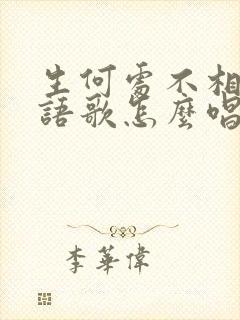 生何處不相
語歌怎麼唱
李華偉